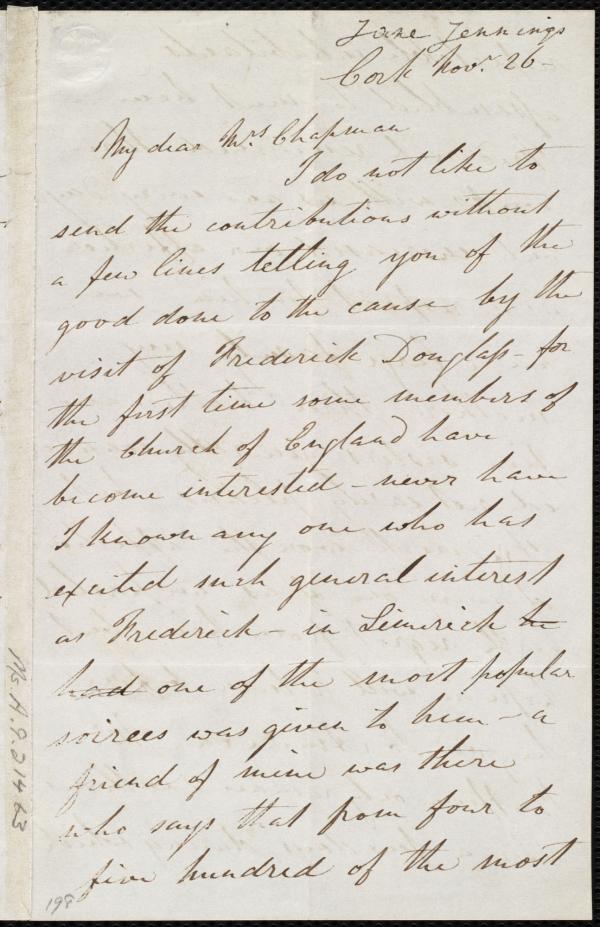 Jane Jennings
Cork Novr. 26-
My dear Mrs Chapman
I do not like to
send the contributions without
a few lines telling you of the
good done to the cause by the
visit of Frederick Douglass - for
the first time some members of
the Church of England have
become interested - never have
I known any one who has
excited such general interest
as Frederick - in Limerick he
had one of the most popular
soirees was given to him - a
friend of mine was there
who says that from four to
five hundred of the most
Ms. A. 9.2 v.
198